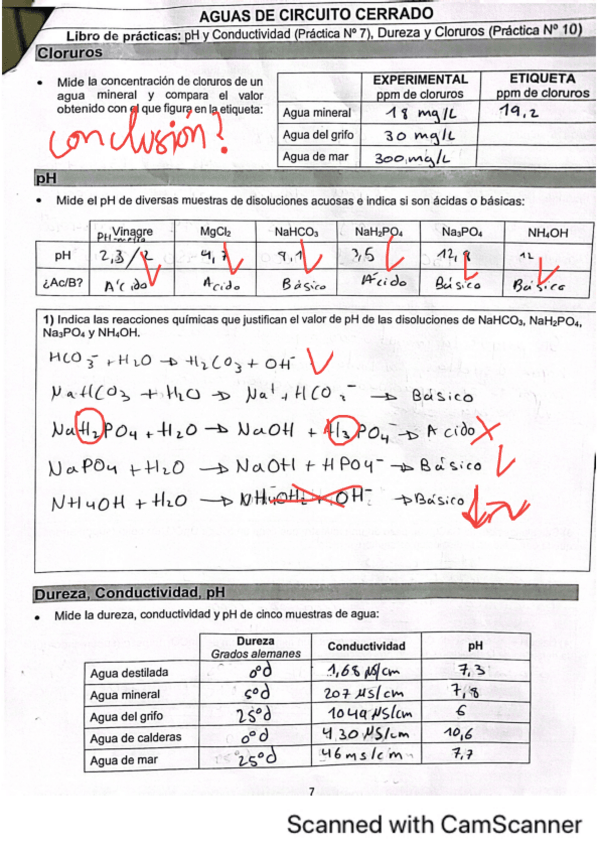 AGUAS DE CIRCUITO CERRADO
Libro de prácticas: pH y Conductividad (Práctica Nº 7), Dureza y Cloruros (Práctica Nº 10)
Cloruros
• Mide la concentración de cloruros de un
agua mineral y compara el valor
obtenido con el que figura en la etiqueta:
conclusión?
EXPERIMENTAL ETIQUETA
ppm de cloruros ppm de cloruros
Agua mineral 18 mg/L 19,2
Agua del grifo 30 mg/L
Agua de mar 300 mg/L
pH
• Mide el pH de diversas muestras de disoluciones acuosas e indica si son ácidas o básicas:
Vinagre MgCl₂ NaHCO₃ NaH₂PO₄ Na₃PO₄ NH₄OH
pH 2,3/2 4,7 9,1 3,5 12,8 12
¿Ac/B? Ácido Ácido Básico Ácido Básico Básico
1) Indica las reacciones químicas que justifican el valor de pH de las disoluciones de NaHCO₃, NaH₂PO₄,
Na₃PO₄ y NH₄OH.
HCO₃⁻ + H₂O → H₂CO₃ + OH⁻
NaHCO₃ + H₂O → Na⁺ + HCO₃⁻ → Básico
NaH₂PO₄ + H₂O → NaOH + H₃PO₄⁻ → Acido
NaPO₄ + H₂O → NaOH + HPO₄⁻ → Básico
NH₄OH + H₂O → → Básico
Dureza, Conductividad, pH
• Mide la dureza, conductividad y pH de cinco muestras de agua:
Dureza Conductividad pH
Grados alemanes
Agua destilada 0ºd 1,68 µS/cm 7,3
Agua mineral 5ºd 207 µS/cm 7,8
Agua del grifo 25ºd 1049 µS/cm 6
Agua de calderas 0ºd 4.30 µS/cm 10,6
Agua de mar 25ºd 46 ms/cm 7,7
7
Scanned with CamScanner